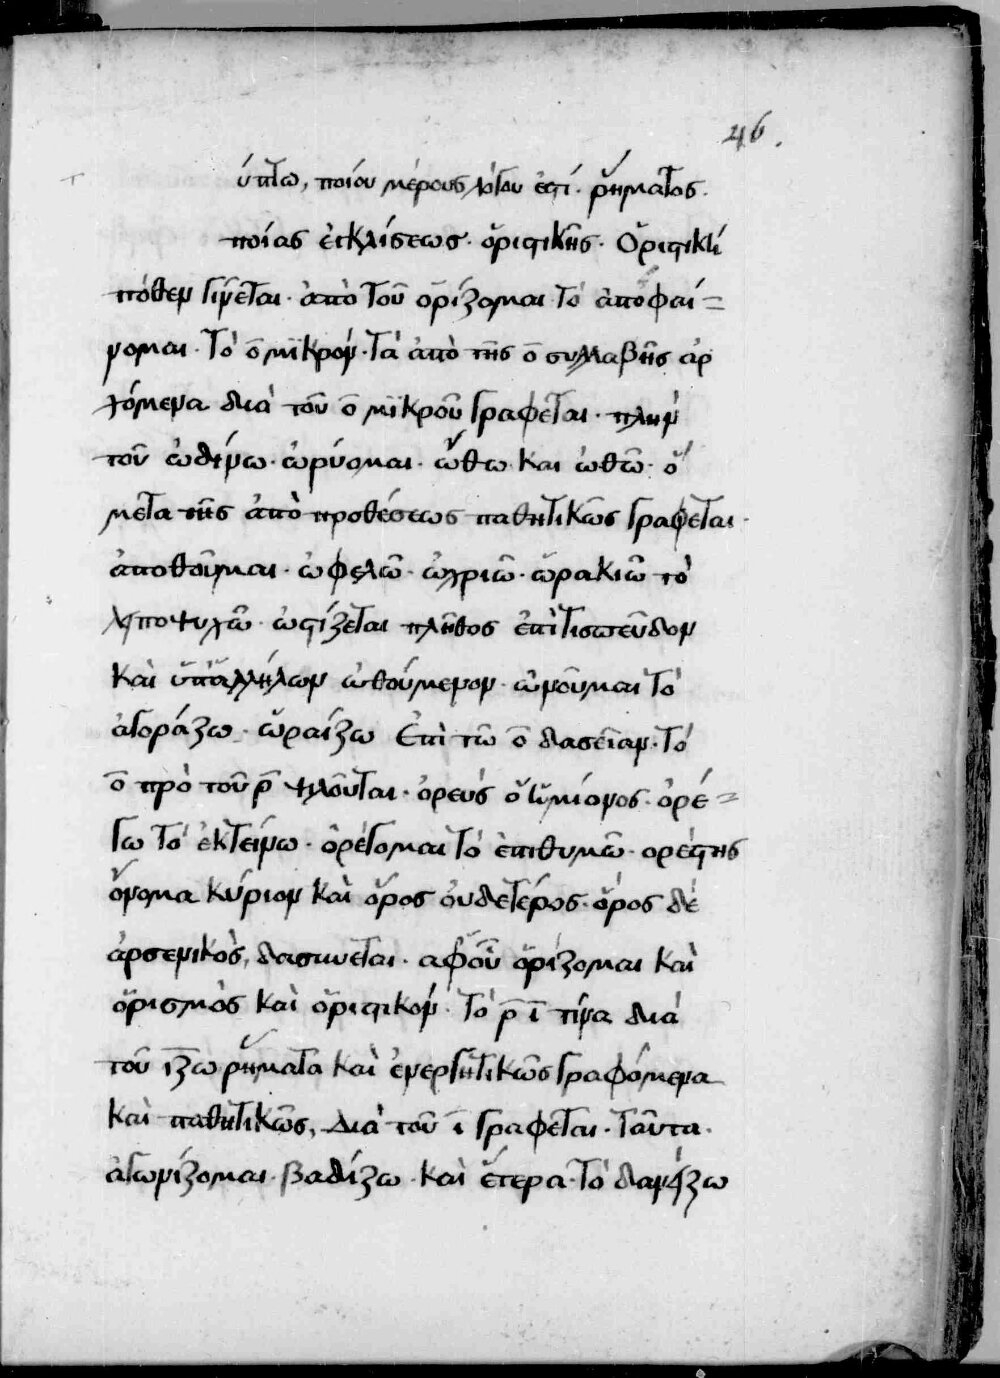 46.
ύπτω, ποίου μέρους λόγου ἐστί· ῥήματος.
ποίας ἐγκλίσεως· ὁριστικῆς· Ὁριστικὴ
πόθεν γίνεται· ἀπὸ τοῦ ὁρίζομαι τὸ ἀποφαί=
νομαι· Τὸ ο μικρόν· Τὰ ἀπὸ τῆς ο συλλαβῆς ἀρ
χόμενα διὰ τοῦ ο μικροῦ γράφεται· πλὴν
τοῦ ὠδίνω· ὠρύομαι· ὤθω καὶ ὠθῶ· ὃ
μετὰ τῆς ἀπὸ προθέσεως παθητικῶς γράφεται·
ἀποθοῦμαι· ὠφελῶ· ὠχριῶ· ὡρακιῶ τὸ
λιποψυχῶ· ὠστίζεται πλῆθος ἐπίτισπεῦδον
καὶ ὑπἀλλήλων ὠθούμενον· ὠνοῦμαι τὸ
ἀγοράζω· ὡραίζω Ἐπὶ τῶ ο δασεῖαν· Τὸ
ο πρὸ τοῦ ρ ψιλοῦται· ὀρεύς ὁ ἡμίονος· ὀρέ=
γω τὸ ἐκτείνω· ὀρέγομαι τὸ ἐπιθυμῶ· ορέστης
ὄνομα κύριον καὶ ὄρος οὐδετέρος· ὅρος δὲ
ἀρσενικὸς, δασύνεται· αφοὗ ὁρίζομαι καὶ
ὁρισμὸς καὶ ὁριστικόν· Τὸ ρ ι τίνα διὰ
τοῦ ιζω ῥήματα καὶ ἐνεργητικῶς γραφόμενα
καὶ παθητικῶς, Διὰ τοῦ ι γράφεται· Ταῦτα·
ἀγωνίζομαι· βαδίζω· καὶ ἕτερα· Τὸ δανείζω